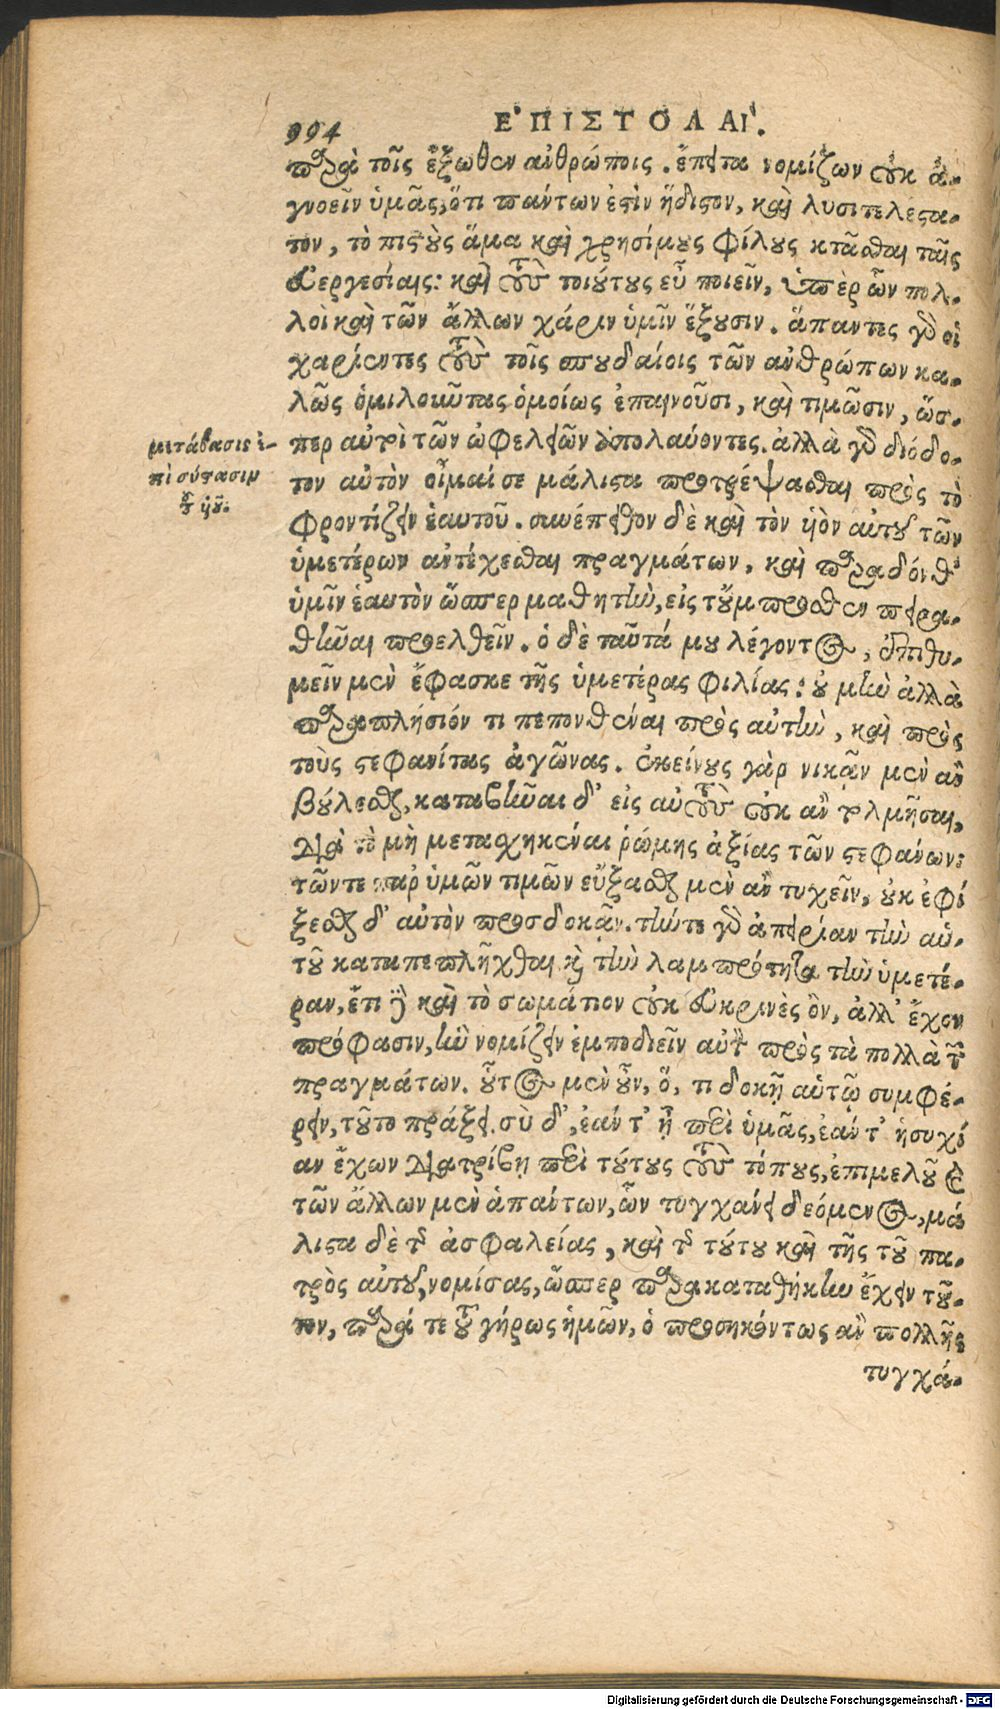 994
ΕΠΙΣΤΟΛΑΙ.
παρὰ τοῖς ἔξωθεν ἀνθρώποις. ἔπειτα νομίζων οὐκ ἀ-
γνοεῖν ὑμᾶς, ὅτι πάντων ἐστὶν ἥδιστον, καὶ λυσιτελέστα-
τον, τὸ πιστοὺς ἅμα καὶ χρησίμους φίλους κτᾶσθαι ταῖς
εὐεργεσίαις: καὶ τοὺς τοιούτους εὖ ποιεῖν, ὑπὲρ ὧν πολ-
λοὶ καὶ τῶν ἄλλων χάριν ὑμῖν ἕξουσιν. ἅπαντες γὰρ οἱ
χαρίεντες τοὺς τοῖς σπουδαίοις τῶν ἀνθρώπων κα-
λῶς ὁμιλοῦντας ὁμοίως ἐπαινοῦσι, καὶ τιμῶσιν, ὥσ-
περ αὐτοὶ τῶν ὠφελειῶν ἀπολαύοντες. ἀλλὰ γὰρ διόδο-
τον αὐτὸν οἶμαί σε μάλιστα προτρέψασθαι πρὸς τὸ
φροντίζειν ἑαυτοῦ. συνέπειθον δὲ καὶ τὸν ὑὸν αὐτοῦ τῶν
ὑμετέρων ἀντέχεσθαι πραγμάτων, καὶ παραδόνθ'
ὑμῖν ἑαυτὸν ὥσπερ μαθητὴν, εἰς τοὔμπροσθεν πειρα-
θῆναι προελθεῖν. ὁ δὲ ταῦτά μου λέγοντος, ἐπιθυ-
μεῖν μὲν ἔφασκε τῆς ὑμετέρας φιλίας: οὐ μὴν ἀλλὰ
παραπλήσιόν τι πεπονθέναι πρὸς αὐτὴν, καὶ πρὸς
τοὺς στεφανίτας ἀγῶνας. ἐκείνους γὰρ νικᾷν μὲν ἂν
βούλεσθαι, καταβῆναι δ' εἰς αὐτοὺς οὐκ ἂν τολμῆσαι,
διὰ τὸ μὴ μετεσχηκέναι ῥώμης ἀξίας τῶν στεφάνων:
τῶν τε παρ' ὑμῶν τιμῶν εὔξασθαι μὲν ἂν τυχεῖν, οὐκ ἐφί
ξεσθαι δ' αὐτὸν προσδοκᾷν. τήν τε γὰρ ἀπειρίαν τὴν αὑ-
τοῦ καταπεπλῆχθαι καὶ τὴν λαμπρότητα τὴν ὑμετέ-
ραν, ἔτι δὲ καὶ τὸ σωμάτιον οὐκ εὐκρινὲς ὂν, ἀλλ' ἔχον
πρόφασιν, ἣν νομίζειν ἐμποδιεῖν αὐτὸν πρὸς τὰ πολλὰ τῶν
πραγμάτων. οὗτος μὲν οὖν, ὅ, τι δοκῇ αὑτῷ συμφέ-
ρειν, τοῦτο πράξει. σὺ δ', ἐάν τ' ᾖ περὶ ὑμᾶς, ἐάν τ' ἡσυχί
αν ἔχων διατρίβῃ περὶ τούτους τοὺς τόπους, ἐπιμελοῦ καὶ
τῶν ἄλλων μὲν ἁπάντων, ὧν τυγχάνει δεόμενος, μά-
λιστα δὲ τῆς ἀσφαλείας, καὶ τῆς τούτου καὶ τῆς τοῦ πα-
τρὸς αὐτοῦ, νομίσας, ὥσπερ παρακαταθήκην ἔχειν τοῦ-
τον, παρά τε τοῦ γήρως ἡμῶν, ὃ προσηκόντως ἂν πολλῆς
τυγχά-
μετάβασις ἐ-
πὶ σύστασιν
τοῦ ὑοῦ.
Digitalisierung gefördert durch die Deutsche Forschungsgemeinschaft - DFG